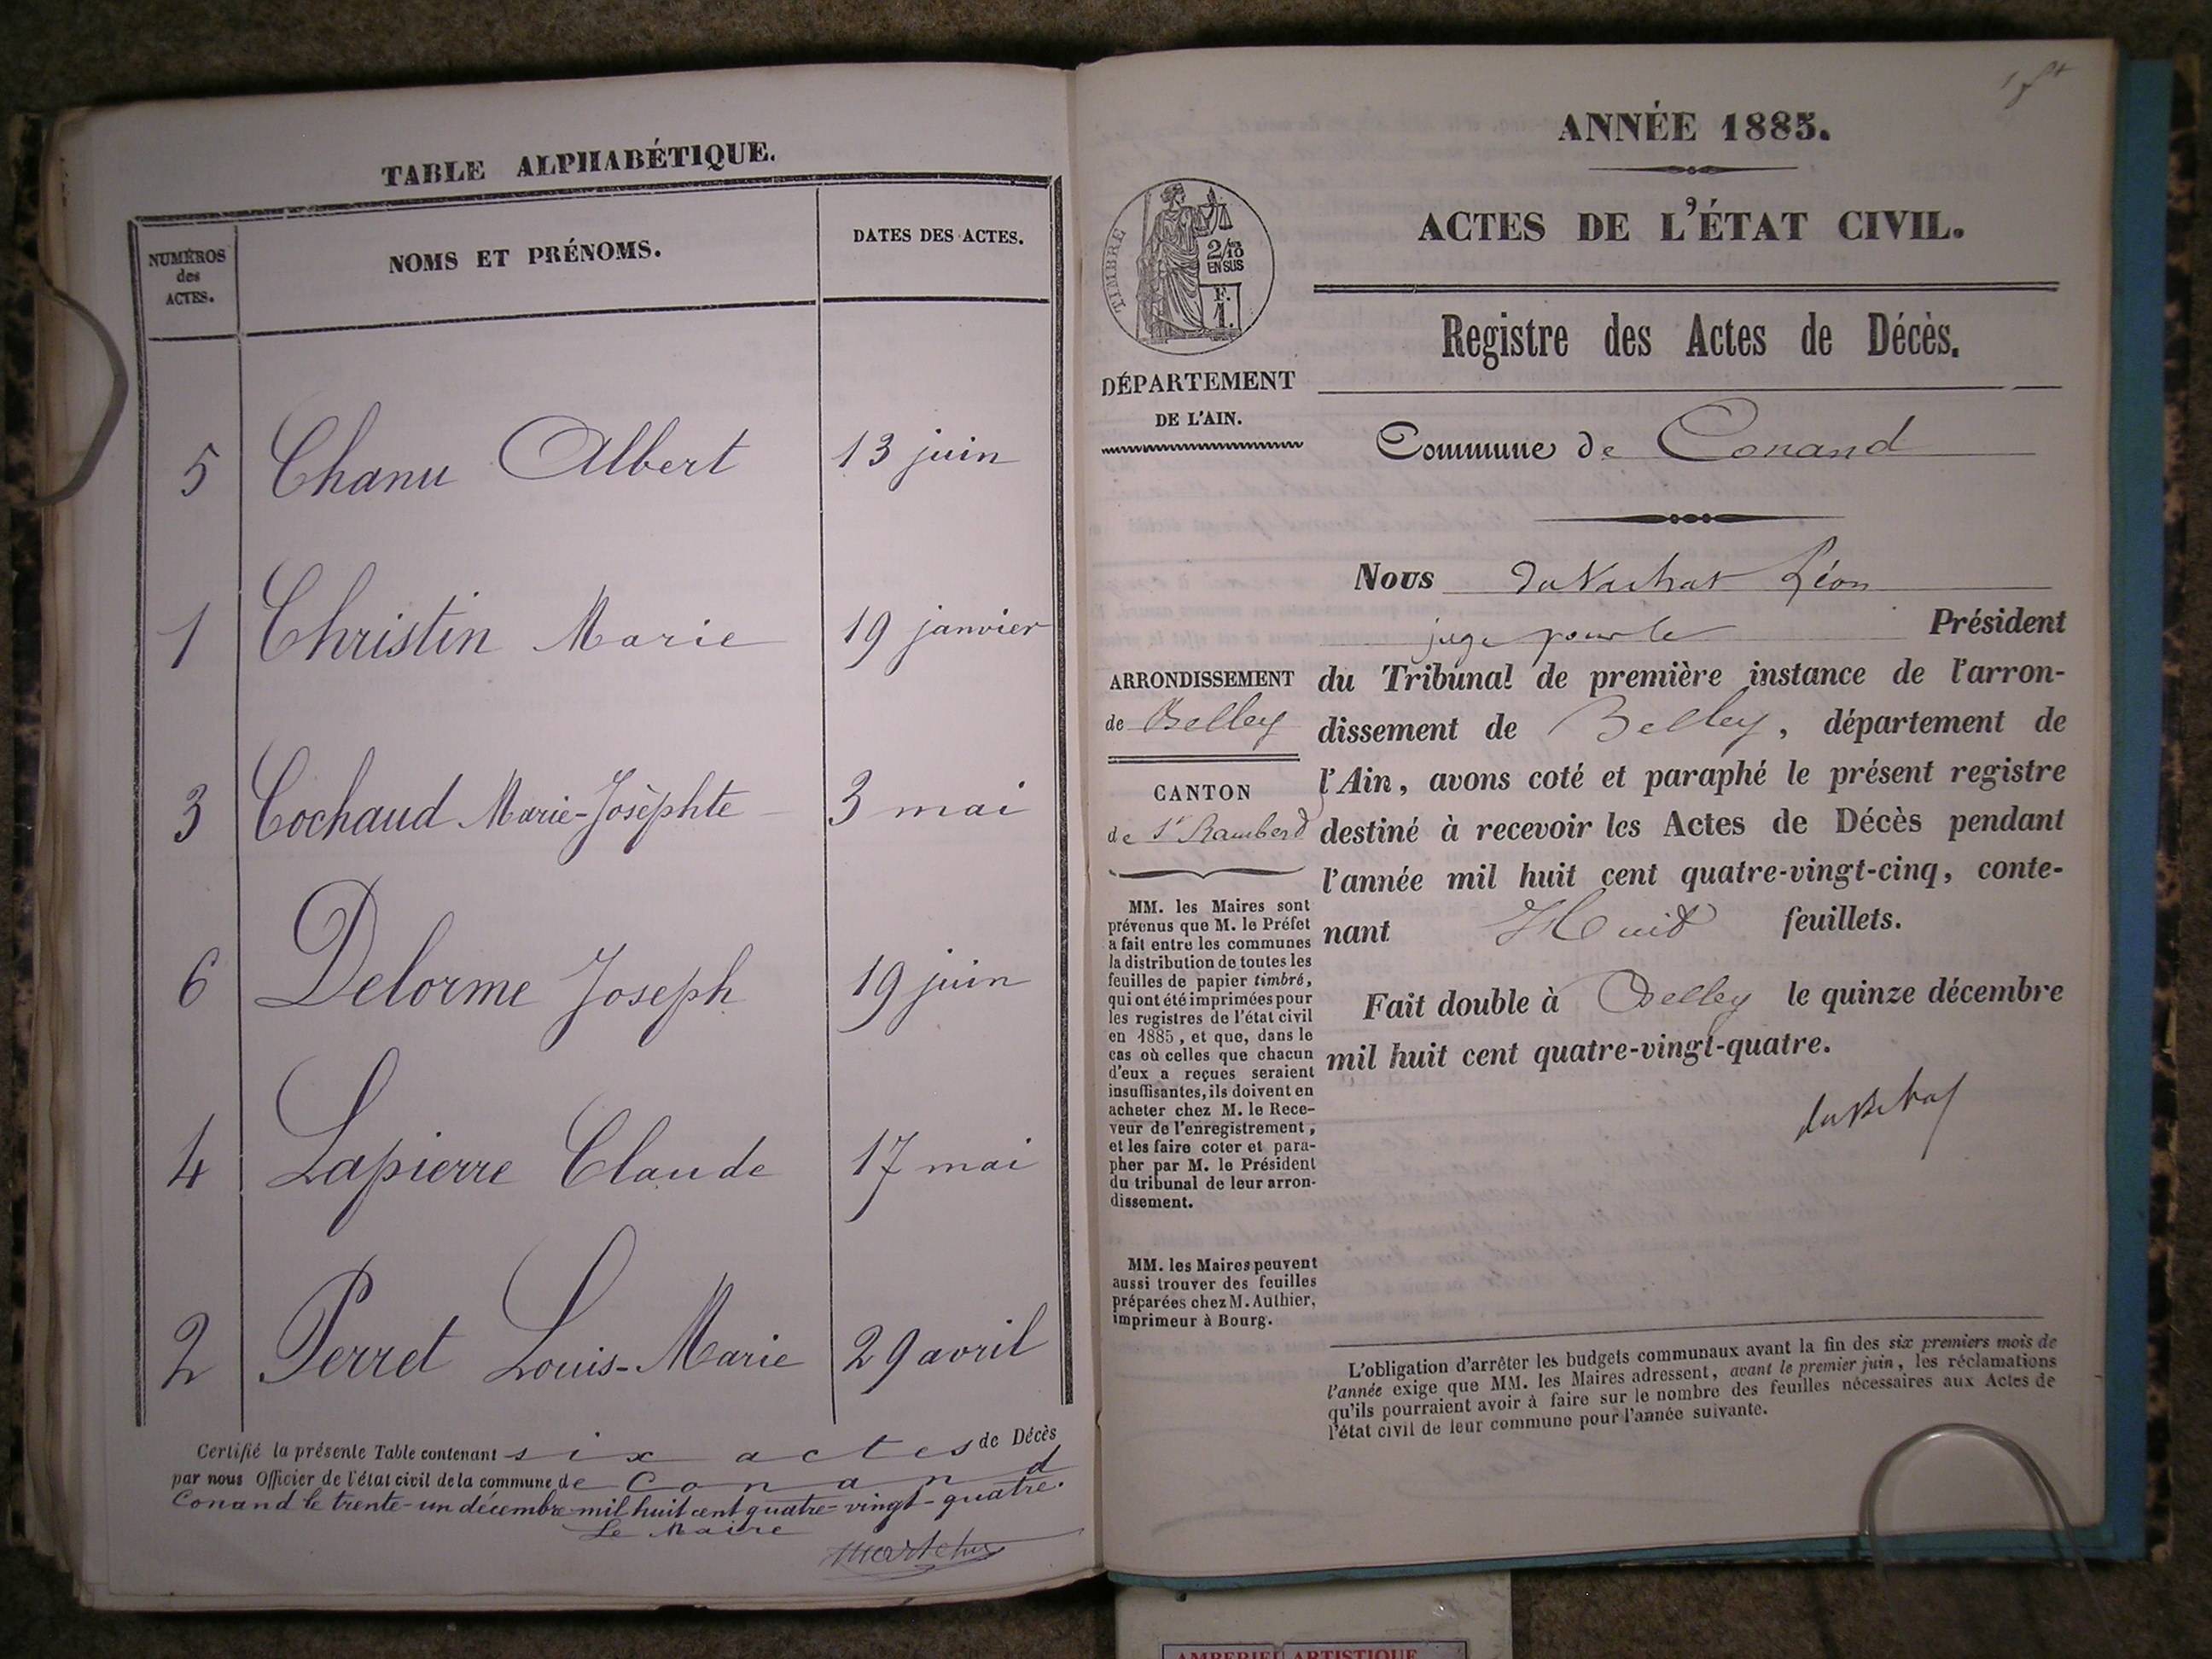 TABLE ALPHABÉTIQUE.
NUMÉROS
des
ACTES.
NOMS ET PRÉNOMS.
DATES DES ACTES.
5 Chanu Albert 13 juin
1 Christin Marie 19 janvier
3 Cochaud Marie-Josèphte 3 mai
6 Delorme Joseph 19 juin
4 Lapierre Claude 17 mai
2 Perret Louis-Marie 29 avril
Certifié la présente Table contenant six actes de Décès
par nous Officier de l'état civil de la commune de Conand
Conand le trente-un décembre mil huit cent quatre-vingt-quatre.
Le Maire
ANNÉE 1885.
ACTES DE L'ÉTAT CIVIL.
TIMBRE
2/10
EN SUS
F.
1.
Registre des Actes de Décès.
DÉPARTEMENT
DE L'AIN.
Commune de Conand
Nous Léon
juge pour le Président
ARRONDISSEMENT
de Belley
CANTON
de St Rambert
du Tribunal de première instance de l'arron-
dissement de Belley, département de
l'Ain, avons coté et paraphé le présent registre
destiné à recevoir les Actes de Décès pendant
l'année mil huit cent quatre-vingt-cinq, conte-
nant Huit feuillets.
Fait double à Belley le quinze décembre
mil huit cent quatre-vingt-quatre.
MM. les Maires sont
prévenus que M. le Préfet
a fait entre les communes
la distribution de toutes les
feuilles de papier timbré,
qui ont été imprimées pour
les registres de l'état civil
en 1885, et que, dans le
cas où celles que chacun
d'eux a reçues seraient
insuffisantes, ils doivent en
acheter chez M. le Rece-
veur de l'enregistrement,
et les faire coter et para-
pher par M. le Président
du tribunal de leur arron-
dissement.
MM. les Maires peuvent
aussi trouver des feuilles
préparées chez M. Authier,
imprimeur à Bourg.
L'obligation d'arrêter les budgets communaux avant la fin des six premiers mois de
l'année exige que MM. les Maires adressent, avant le premier juin, les réclamations
qu'ils pourraient avoir à faire sur le nombre des feuilles nécessaires aux Actes de
l'état civil de leur commune pour l'année suivante.
AMBERIEU ARTISTIQUE